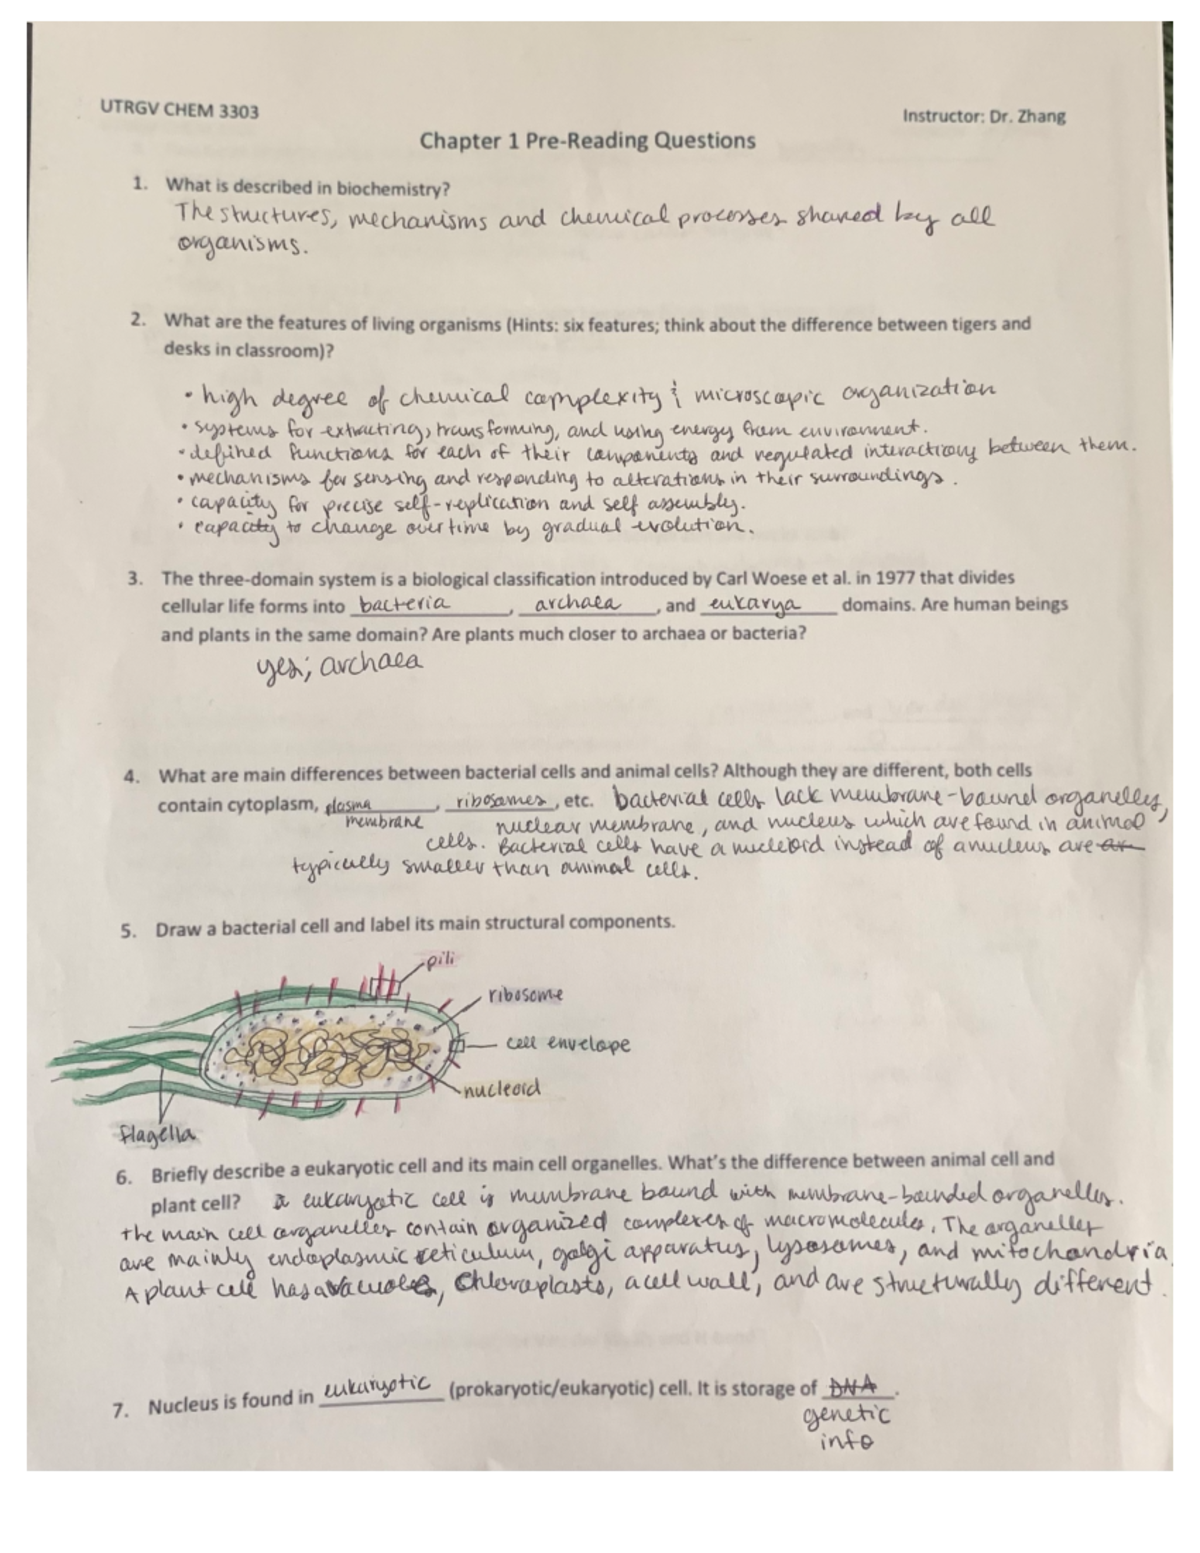 UTRGV CHEM 3303
Instructor: Dr. Zhang
Chapter 1 Pre-Reading Questions
1. What is described in biochemistry?
The structures, mechanisms and chemical processes shared by all
organisms.
2. What are the features of living organisms (Hints: six features; think about the difference between tigers and
desks in classroom)?
• high degree of chemical complexity & microscopic organization
• systems for extracting, transforming, and using energy from environment.
• defined functions for each of their components and regulated interactions between them.
• mechanisms for sensing and responding to alterations in their surroundings.
• capacity for precise self-replication and self assembly.
• capacity to change over time by gradual evolution.
3. The three-domain system is a biological classification introduced by Carl Woese et al. in 1977 that divides
cellular life forms into bacteria, archaea, and eukarya domains. Are human beings
and plants in the same domain? Are plants much closer to archaea or bacteria?
yes; archaea
4. What are main differences between bacterial cells and animal cells? Although they are different, both cells
contain cytoplasm, plasma, ribosomes, etc. bacterial cells lack membrane-bound organelles,
membrane nuclear membrane, and nucleus which are found in animal
cells. Bacterial cells have a nucleoid instead of a nucleus are ar
typically smaller than animal cells.
5. Draw a bacterial cell and label its main structural components.
pili
ribosome
cell envelope
nucleoid
flagella
6. Briefly describe a eukaryotic cell and its main cell organelles. What's the difference between animal cell and
plant cell? a eukaryotic cell is membrane bound with membrane-bounded organelles.
the main cell organelles contain organized complexes of macromolecules. The organelles
are mainly endoplasmic reticulum, golgi apparatus, lysosomes, and mitochondria
A plant cell has a vacuoles, chloroplasts, a cell wall, and are structurally different.
7. Nucleus is found in eukaryotic (prokaryotic/eukaryotic) cell. It is storage of DNA.
genetic
info